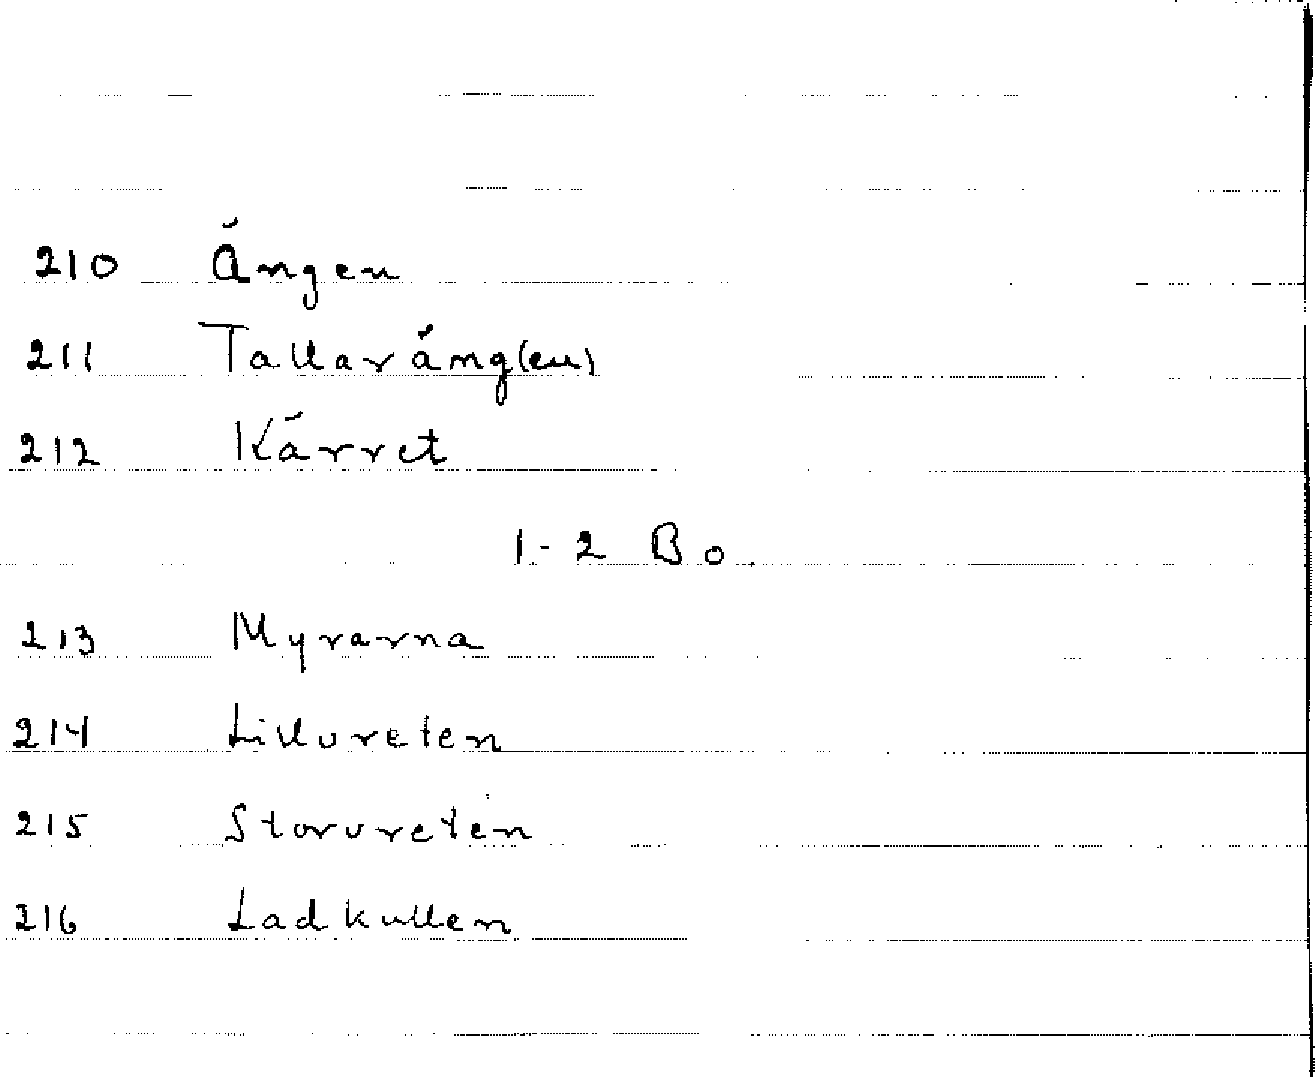 210 Ängen
211 Tallaräng(en)
212 Kärret
1-2 Bo.
213 Myrarna
214 Lillvreten
215 Storvreten
216 Ladkullen